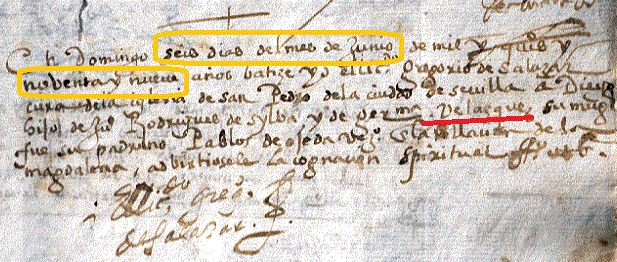 En Domingo seis dias del mes de Junio de mil y quis y
noventa y nueve años batize yo el licdo Gregorio de Salazar
cura de la iglesia de san Pedro de la ciudad de sevilla a Diego
hijo de Ju° Rodrigues de Sylva y de germa Velasques su muger
fue su padrino Pablos de ojeda vº. de la collacion de la
magdalena, advirtiosele la cognacion spiritual ff° ut s.
El ldo greg.
de salazar